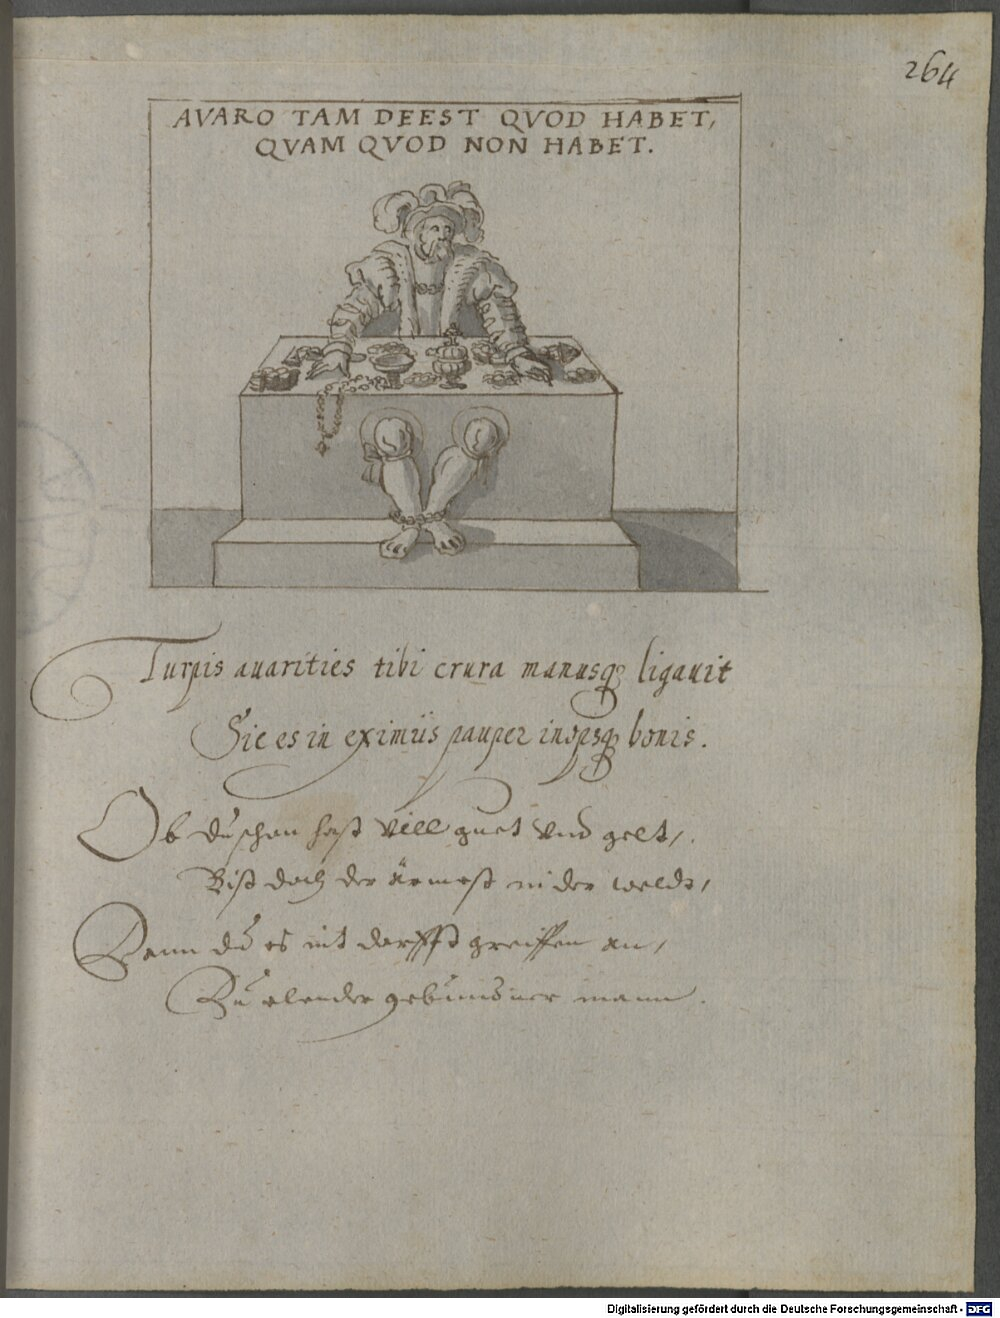 264
AVARO TAM DEEST QVOD HABET,
QVAM QVOD NON HABET.
Turpis auarities tibi crura manusq; ligauit
Sic es in eximiis pauper inopsq; bonis.
Ob du schon hast vill guet vnd gelt,
Bist doch der ärmest in der weldt,
Dann du es nit darffst greiffen an,
Du elender gebundner mann.
Digitalisierung gefördert durch die Deutsche Forschungsgemeinschaft - DFG